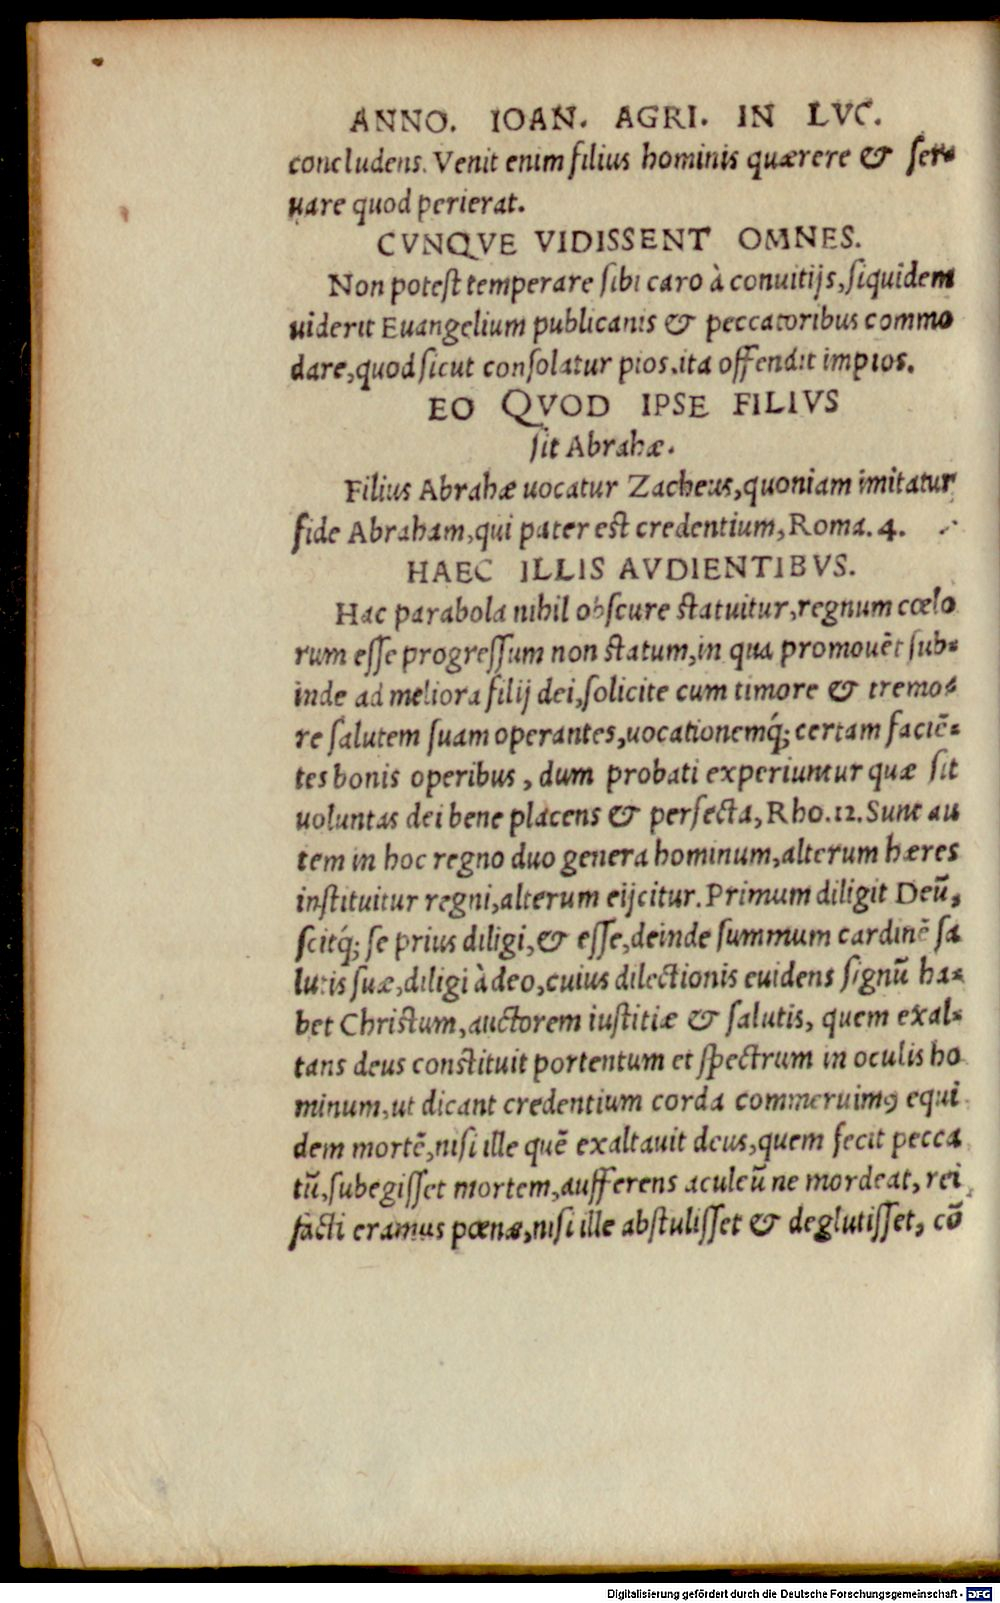 ANNO. IOAN. AGRI. IN LVC.
concludens. Venit enim filius hominis quærere & ser-
uare quod perierat.
CVNQVE VIDISSENT OMNES.
Non potest temperare sibi caro à conuitijs, siquidem
uiderit Euangelium publicanis & peccatoribus commo
dare, quod sicut consolatur pios, ita offendit impios.
EO QVOD IPSE FILIVS
sit Abrahæ.
Filius Abrahæ uocatur Zacheus, quoniam imitatur
fide Abraham, qui pater est credentium, Roma. 4.
HAEC ILLIS AVDIENTIBVS.
Hac parabola nihil obscure statuitur, regnum cœlo
rum esse progressum non statum, in qua promouēt sub-
inde ad meliora filij dei, solicite cum timore & tremo-
re salutem suam operantes, uocationemq́; certam faciē-
tes bonis operibus, dum probati experiuntur quæ sit
uoluntas dei bene placens & perfecta, Rho. 12. Sunt au
tem in hoc regno duo genera hominum, alterum hæres
instituitur regni, alterum eijcitur. Primum diligit Deū,
scitq́; se prius diligi, & esse, deinde summum cardinē sa
lutis suæ, diligi à deo, cuius dilectionis euidens signū ha-
bet Christum, auctorem iustitiæ & salutis, quem exal-
tans deus constituit portentum et spectrum in oculis ho
minum, ut dicant credentium corda commeruimꝰ equi
dem mortē, nisi ille quē exaltauit deus, quem fecit pecca
tū, subegisset mortem, aufferens aculeū ne mordeat, rei
facti eramus pœnæ, nisi ille abstulisset & deglutisset, cō
Digitalisierung gefördert durch die Deutsche Forschungsgemeinschaft - DFG